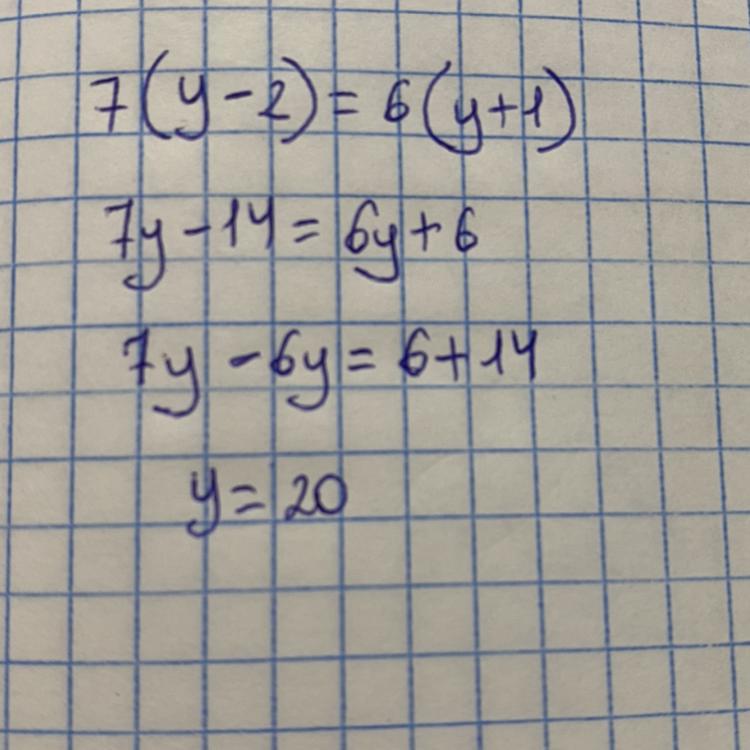 7(y-2)=6(y+1)
7y-14=6y+6
7y-6y=6+14
y=20